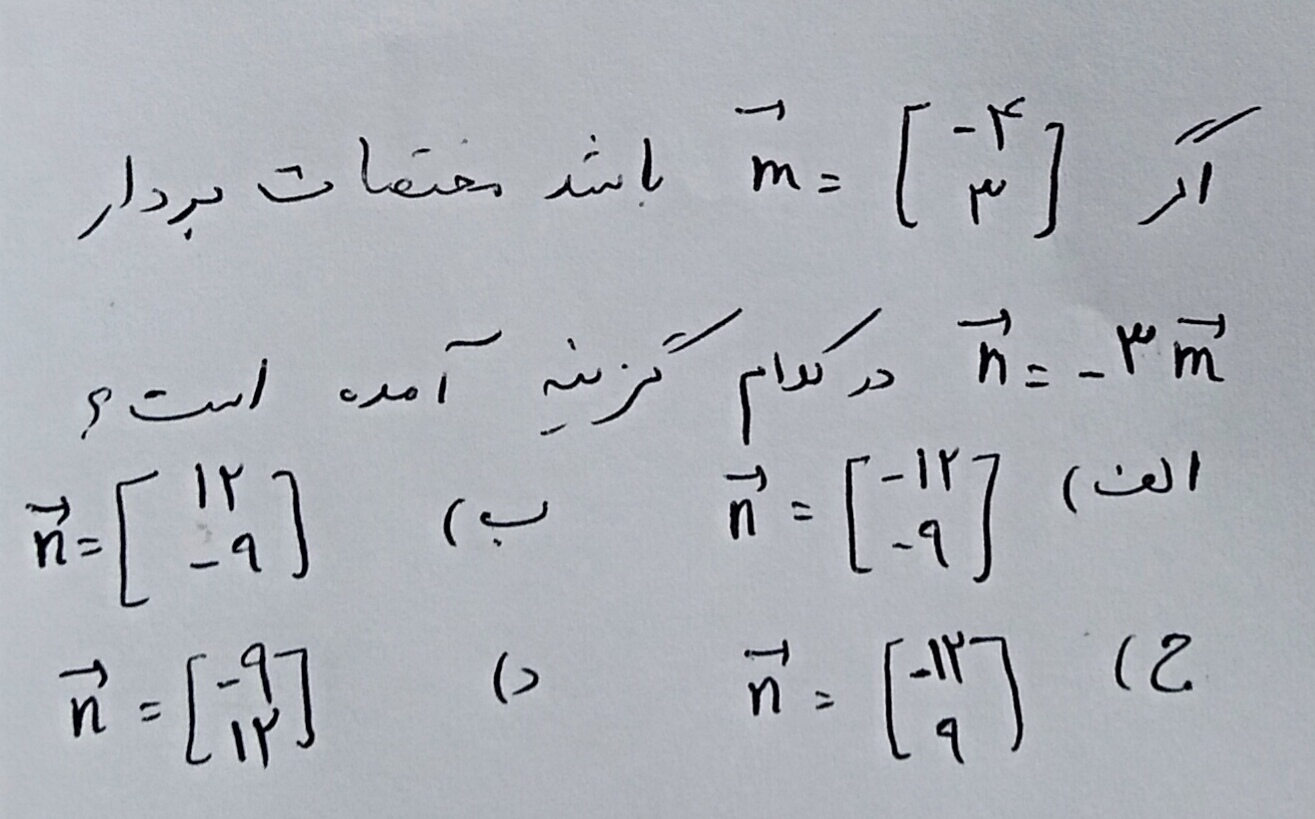 اگر m⃗ = [-۴ ۳] باشد مختصات بردار
n⃗ = -۳m⃗ در کدام گزینه آمده است؟
الف) n⃗ = [-۱۲ -۹] ب) n⃗ = [۱۲ -۹]
ج) n⃗ = [-۱۲ ۹] د) n⃗ = [-۹ ۱۲]